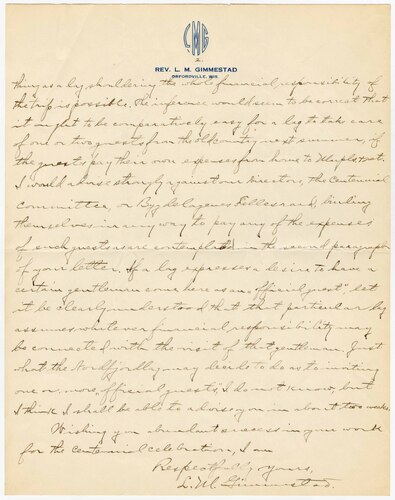 LMG
2.
REV. L. M. GIMMESTAD
ORFORDVILLE, WIS.
thing as a lag shouldering the whole financial responsibility of
the trip is possible. The inference would seem to be correct that
it ought to be comparatively easy for a lag to take care
of one or two guests from the old country next summer, if
the guests pay their own expenses from home to Mpls &
I would advise strongly against our Directors, the Centennial
Committee, or Bygdelagenes Fellesraad, binding
themselves in any way to pay any of the expenses
of such guests as are contemplated in the second paragraph
of your letter. If a lag expresses a desire to have a
certain gentleman come here as an "official guest", let
it be clearly understood that that particular lag
assumes whatever financial responsibility may
be connected with the visit of that gentleman. Just
what the Nordfjordlag may decide to do as to inviting
one or more "official guests", I do not know, but
I think I shall be able to advise you in about two weeks.
Wishing you abundant success in your work
for the centennial celebration, I am
Respectfully yours,
L. M. Gimmestad.